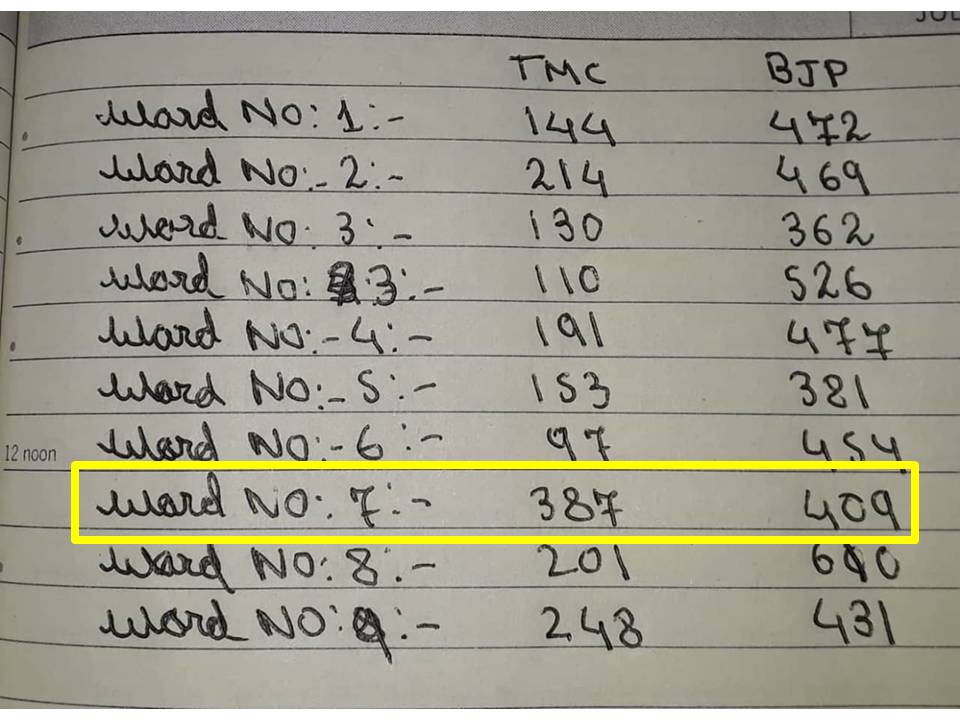 JUL
TMC BJP
Ward NO: 1:- 144 472
Ward NO:- 2:- 214 469
Ward NO: 3:- 130 362
Ward NO: 3:- 110 526
Ward NO:- 4:- 191 477
Ward NO:- 5:- 153 381
Ward NO:- 6:- 97 454
12 noon
Ward NO: 7:- 387 409
Ward NO: 8:- 201
Ward NO: 9:- 248 431